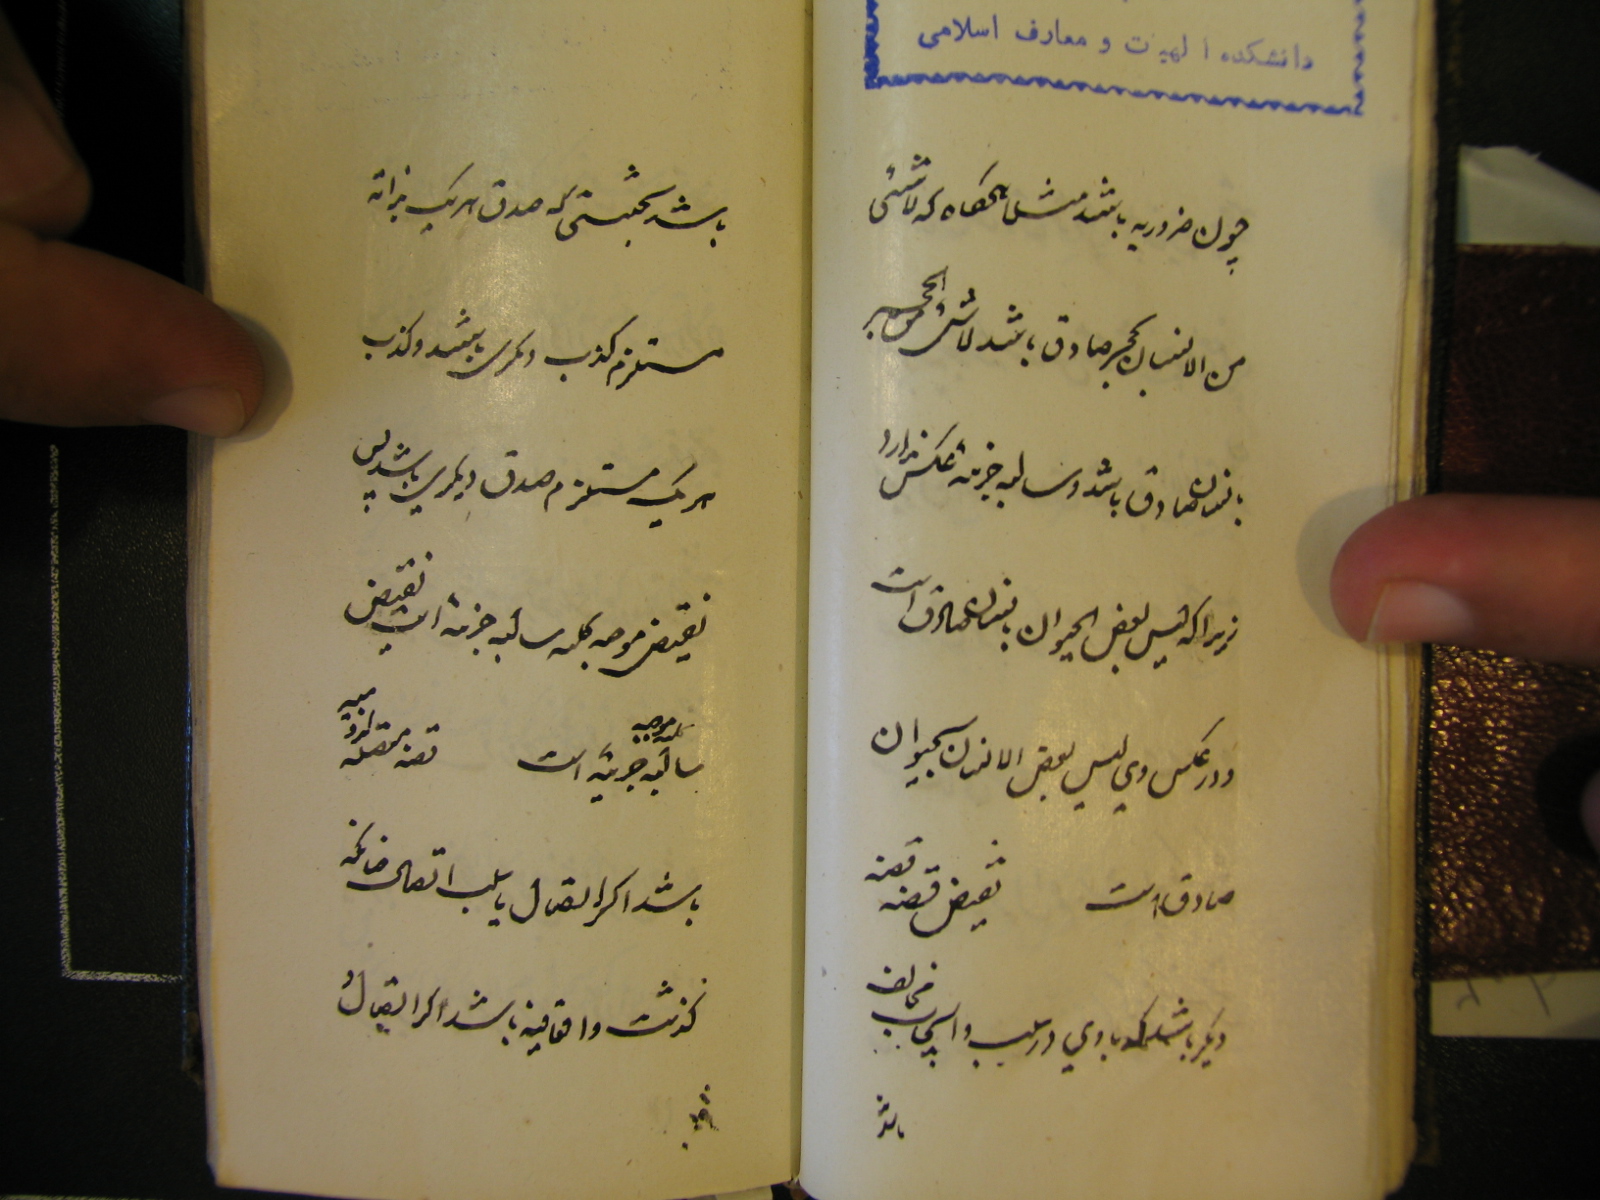 دانشکده الهیات و معارف اسلامی
چون ضروریه باشد مثلا هرگاه که لاشئی
من الانسان بحجر صادق باشد لاشئ من الحجر
بانسان صادق باشد و سالبه جزئیه عکس ندارد
زیرا که لیس بعض الحیوان بانسان صادق است
و در عکس وی لیس بعض الانسان بحیوان
صادق است نقیض قضیه قضیه
دیگر باشد که با وی در سلب و ایجاب مخالف
باشد
باشد بحیثیتی که صدق هر یک بذاته
مستلزم کذب دیگری باشد و کذب
هر یک مستلزم صدق دیگری باشد پس
نقیض موجبه کلیه سالبه جزئیه است نقیض
سالبه جزئیه موجبه کلیه است قضیه متصله لزومیه
باشد اگر اتصال یا سلب اتصال چنانکه
گذشت و اتفاقیه باشد اگر اتصال